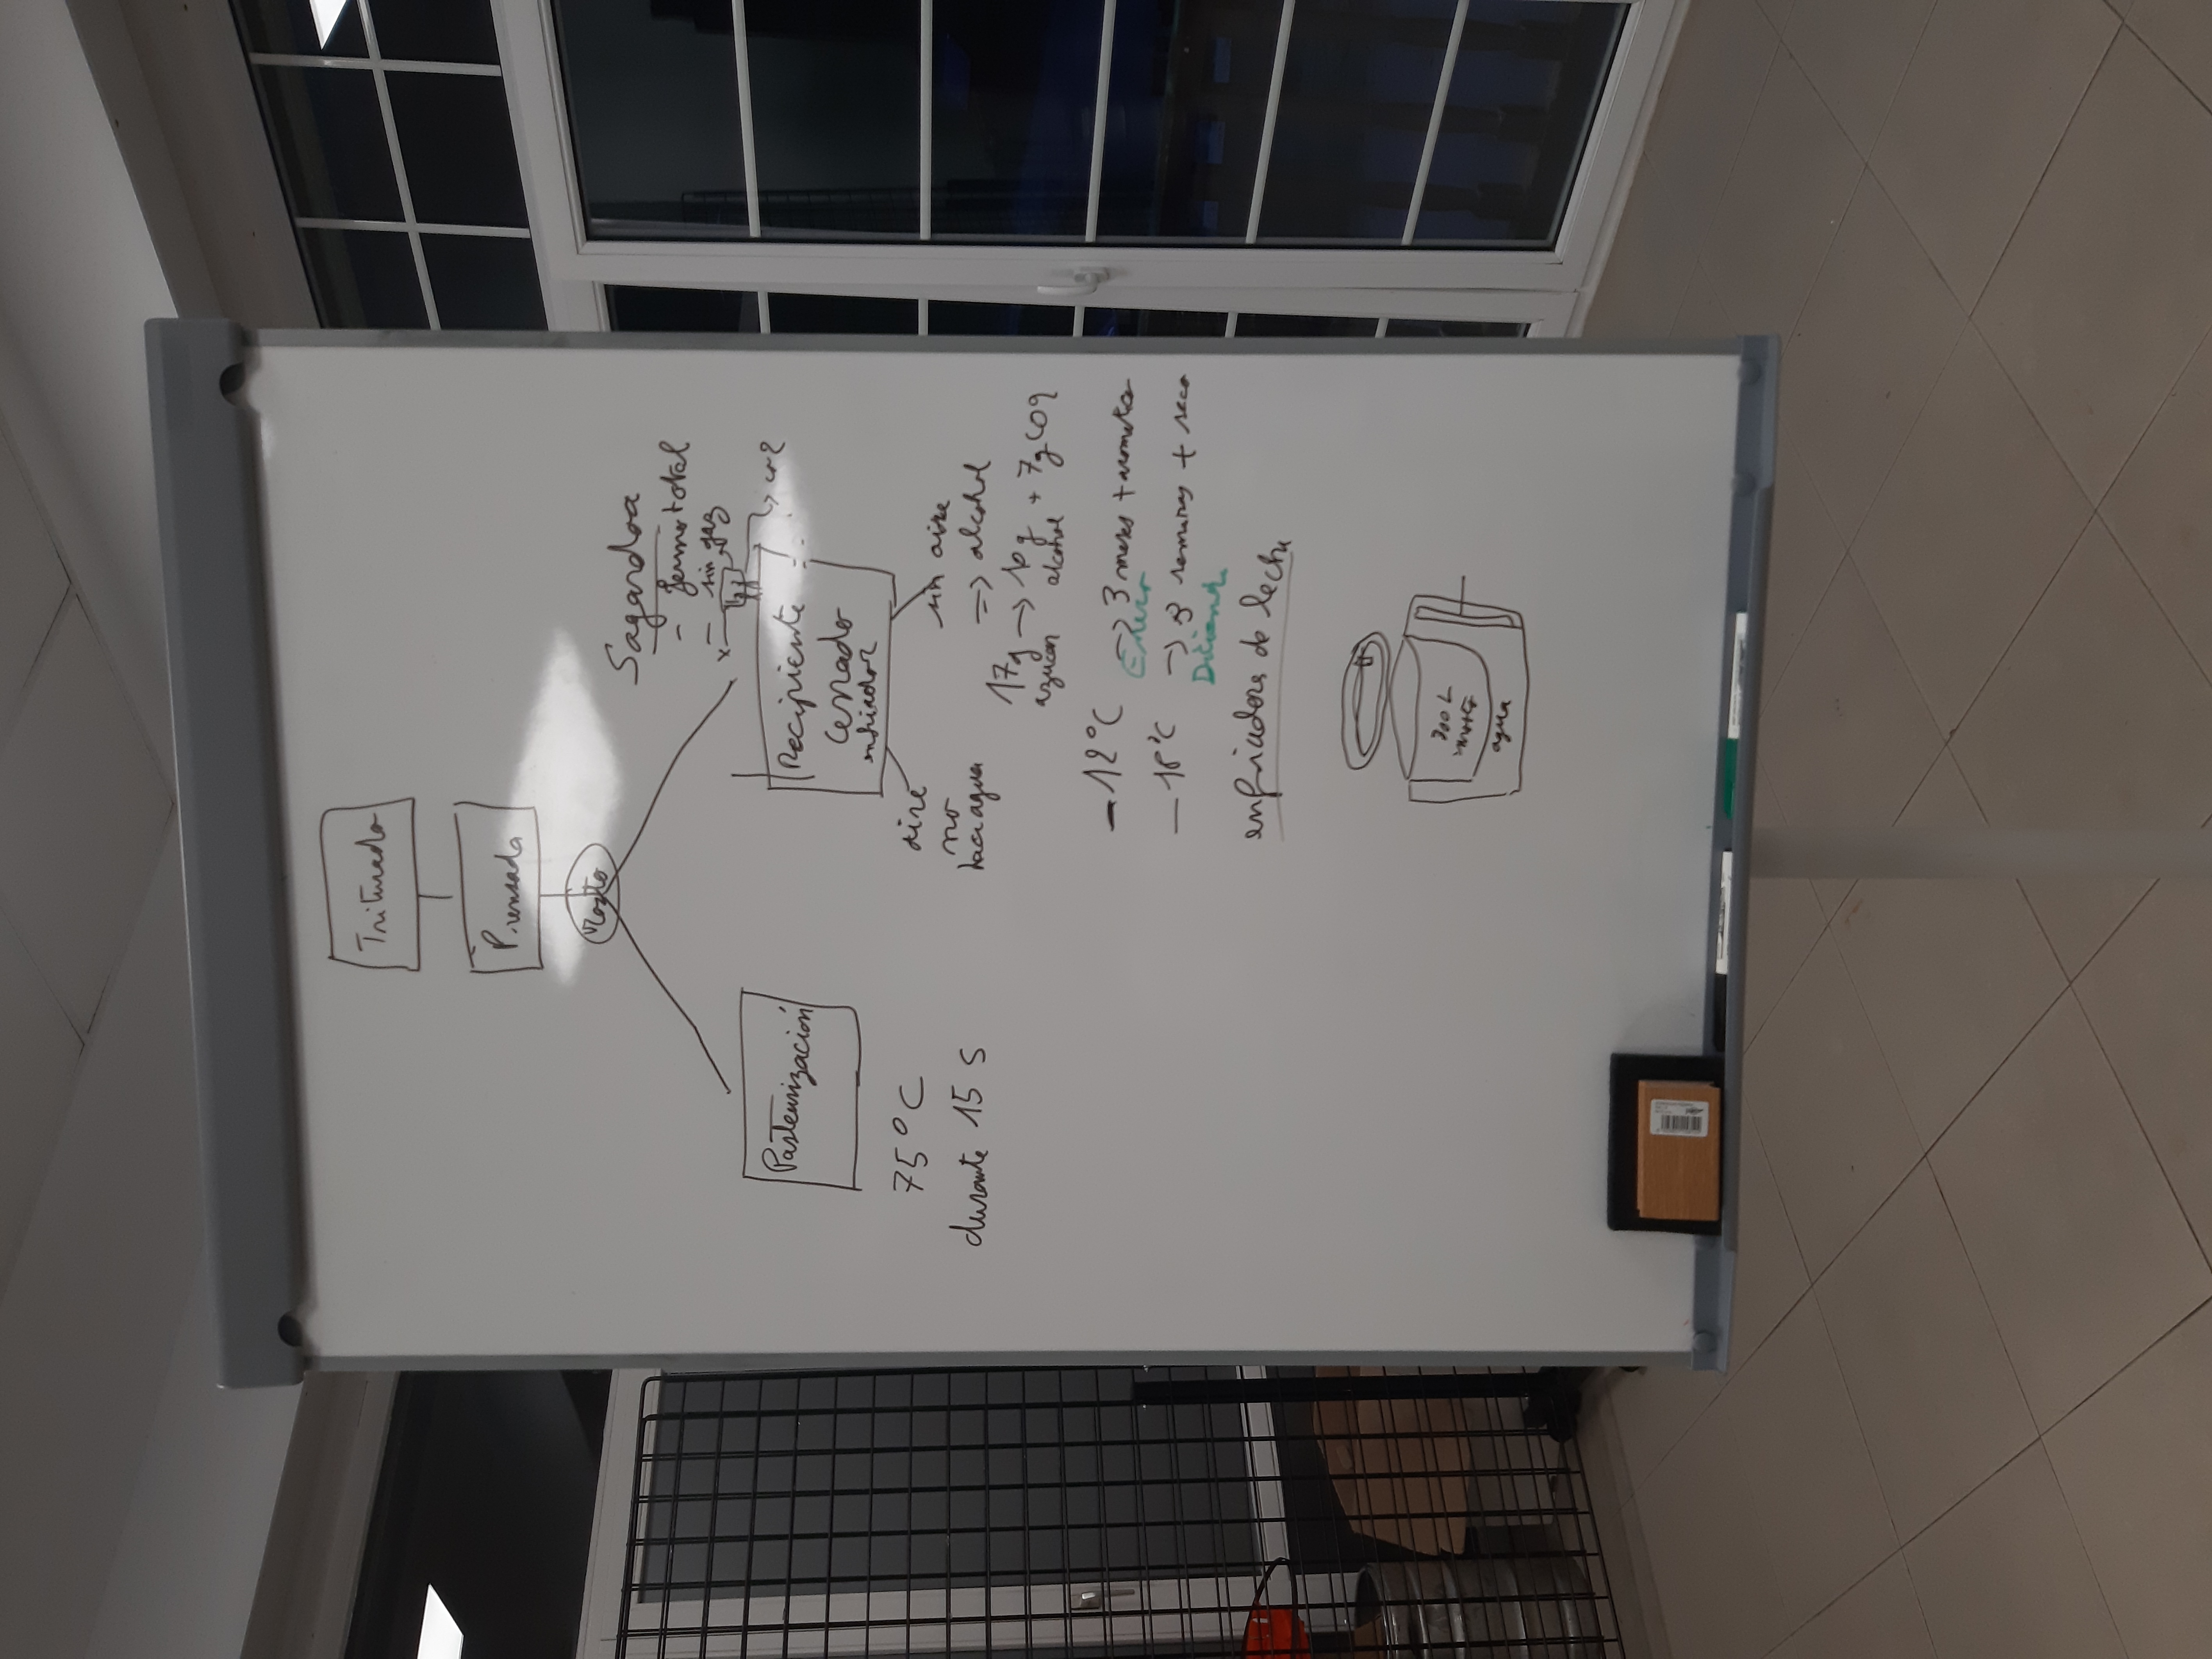 Triturado
Prensada
Mosto
Pasteurización
75°C
durante 15 s
Sagardoa
- ferm total
- sin gaz
Recipiente
Cerrado
enfriador
aire
no
hace agua
sin aire
=> alcohol
17g -> 10g + 7g CO2
azucar alcohol
- 12°C -> 3 meses + aromatico
Enero
- 18°C -> 3 semanas + seco
enfriadora de leche
300 L
mosto
agua